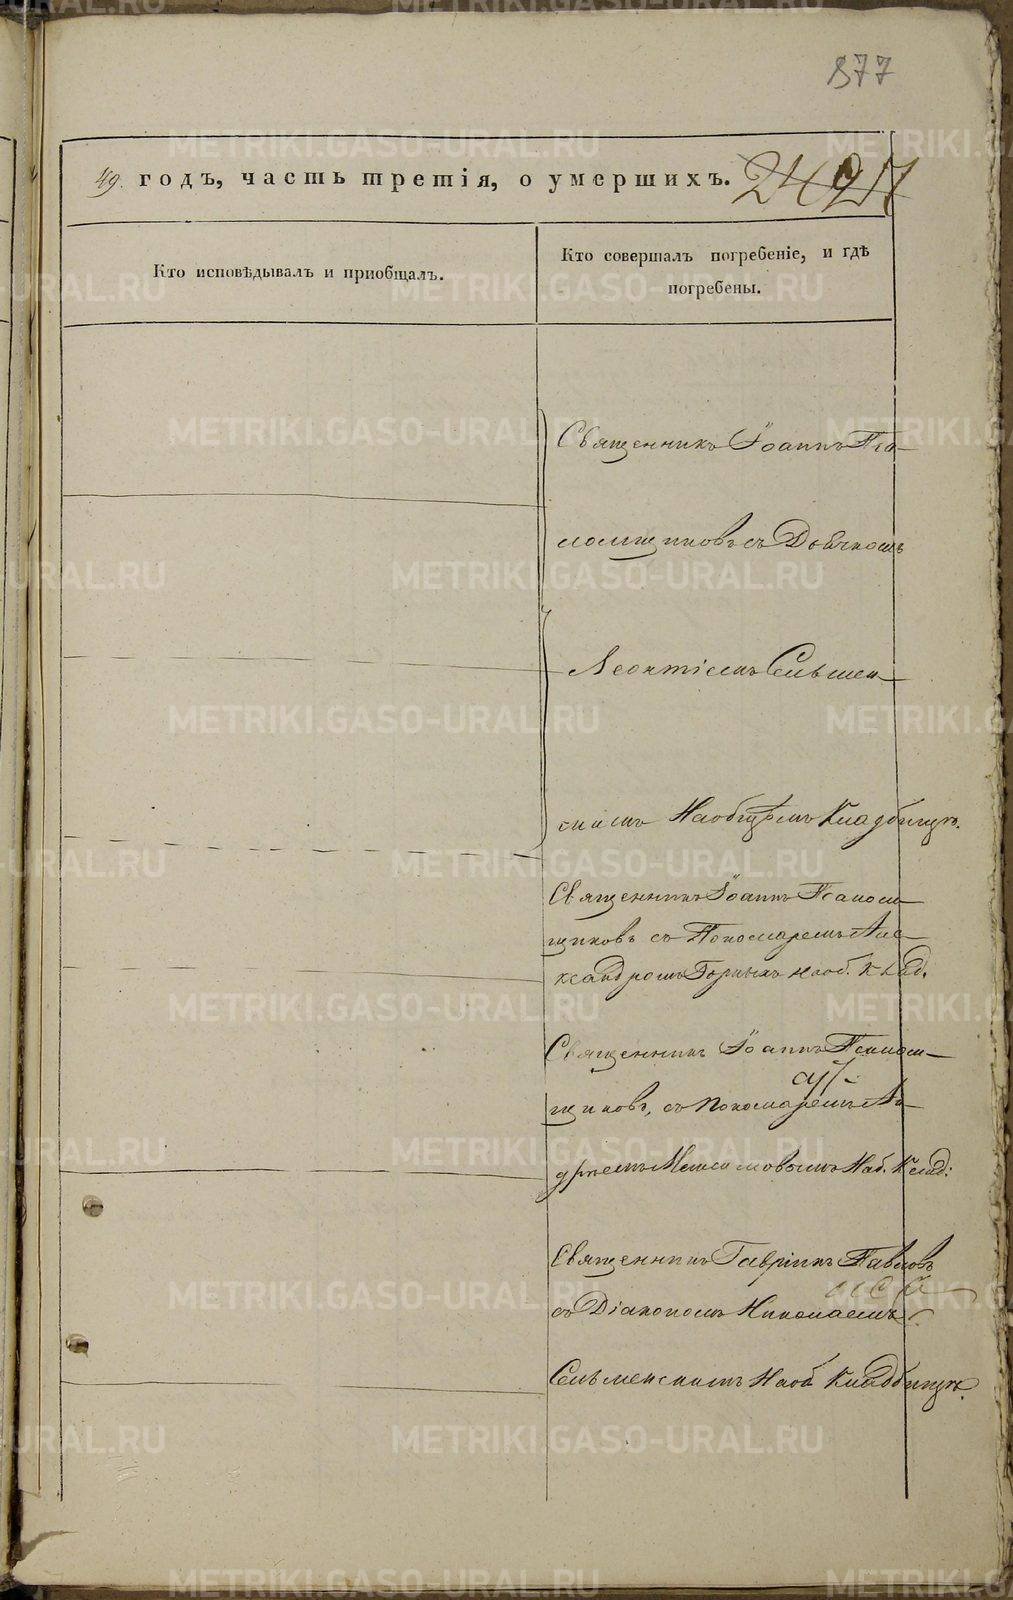 877
49. годъ, часть третія, о умершихъ.
Кто исповѣдывалъ и приобщалъ.
Кто совершалъ погребеніе, и гдѣ
погребены.
Священникъ Іоаннъ Пса-
ломщиковъ съ Дьячкомъ
Леонтіемъ Сельмен-
скимъ На общемъ Кладбищѣ.
Священникъ Іоаннъ Псалом-
щиковъ съ Пономаремъ Але-
ксандромъ Горныхъ на об. Клад.
Священникъ Іоаннъ Псалом-
щиковъ, съ Пономаремъ Ан-
дреемъ Максимовымъ На об. Клад:
Священникъ Гавріилъ Павловъ
съ Діакономъ Николаемъ
Сельменскимъ На об. Кладбищѣ.
METRIKI.GASO-URAL.RU